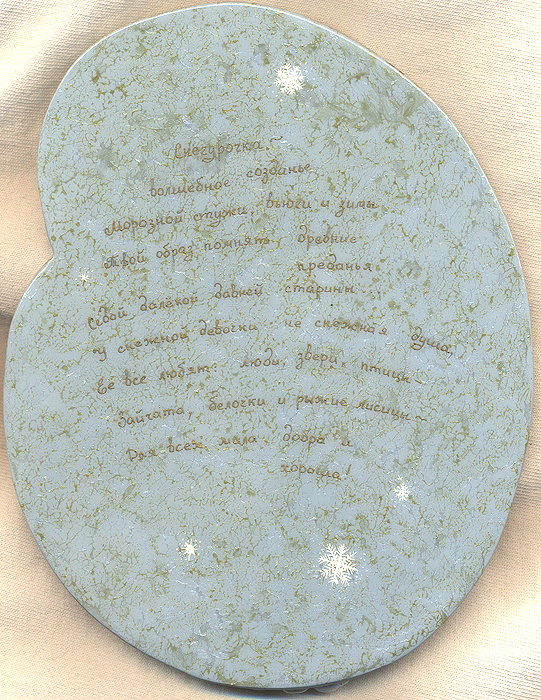 Снегурочка ~
волшебное созданье
Морозной стужи, вьюги и зимы
Твой образ помнят древние
преданья
Седой далёкой давней старины.
У снежной девочки не снежная душа,
Её все любят: люди, звери, птицы ~
Зайчата, белочки и рыжие лисицы ~
Для всех мила, добра и
хороша!